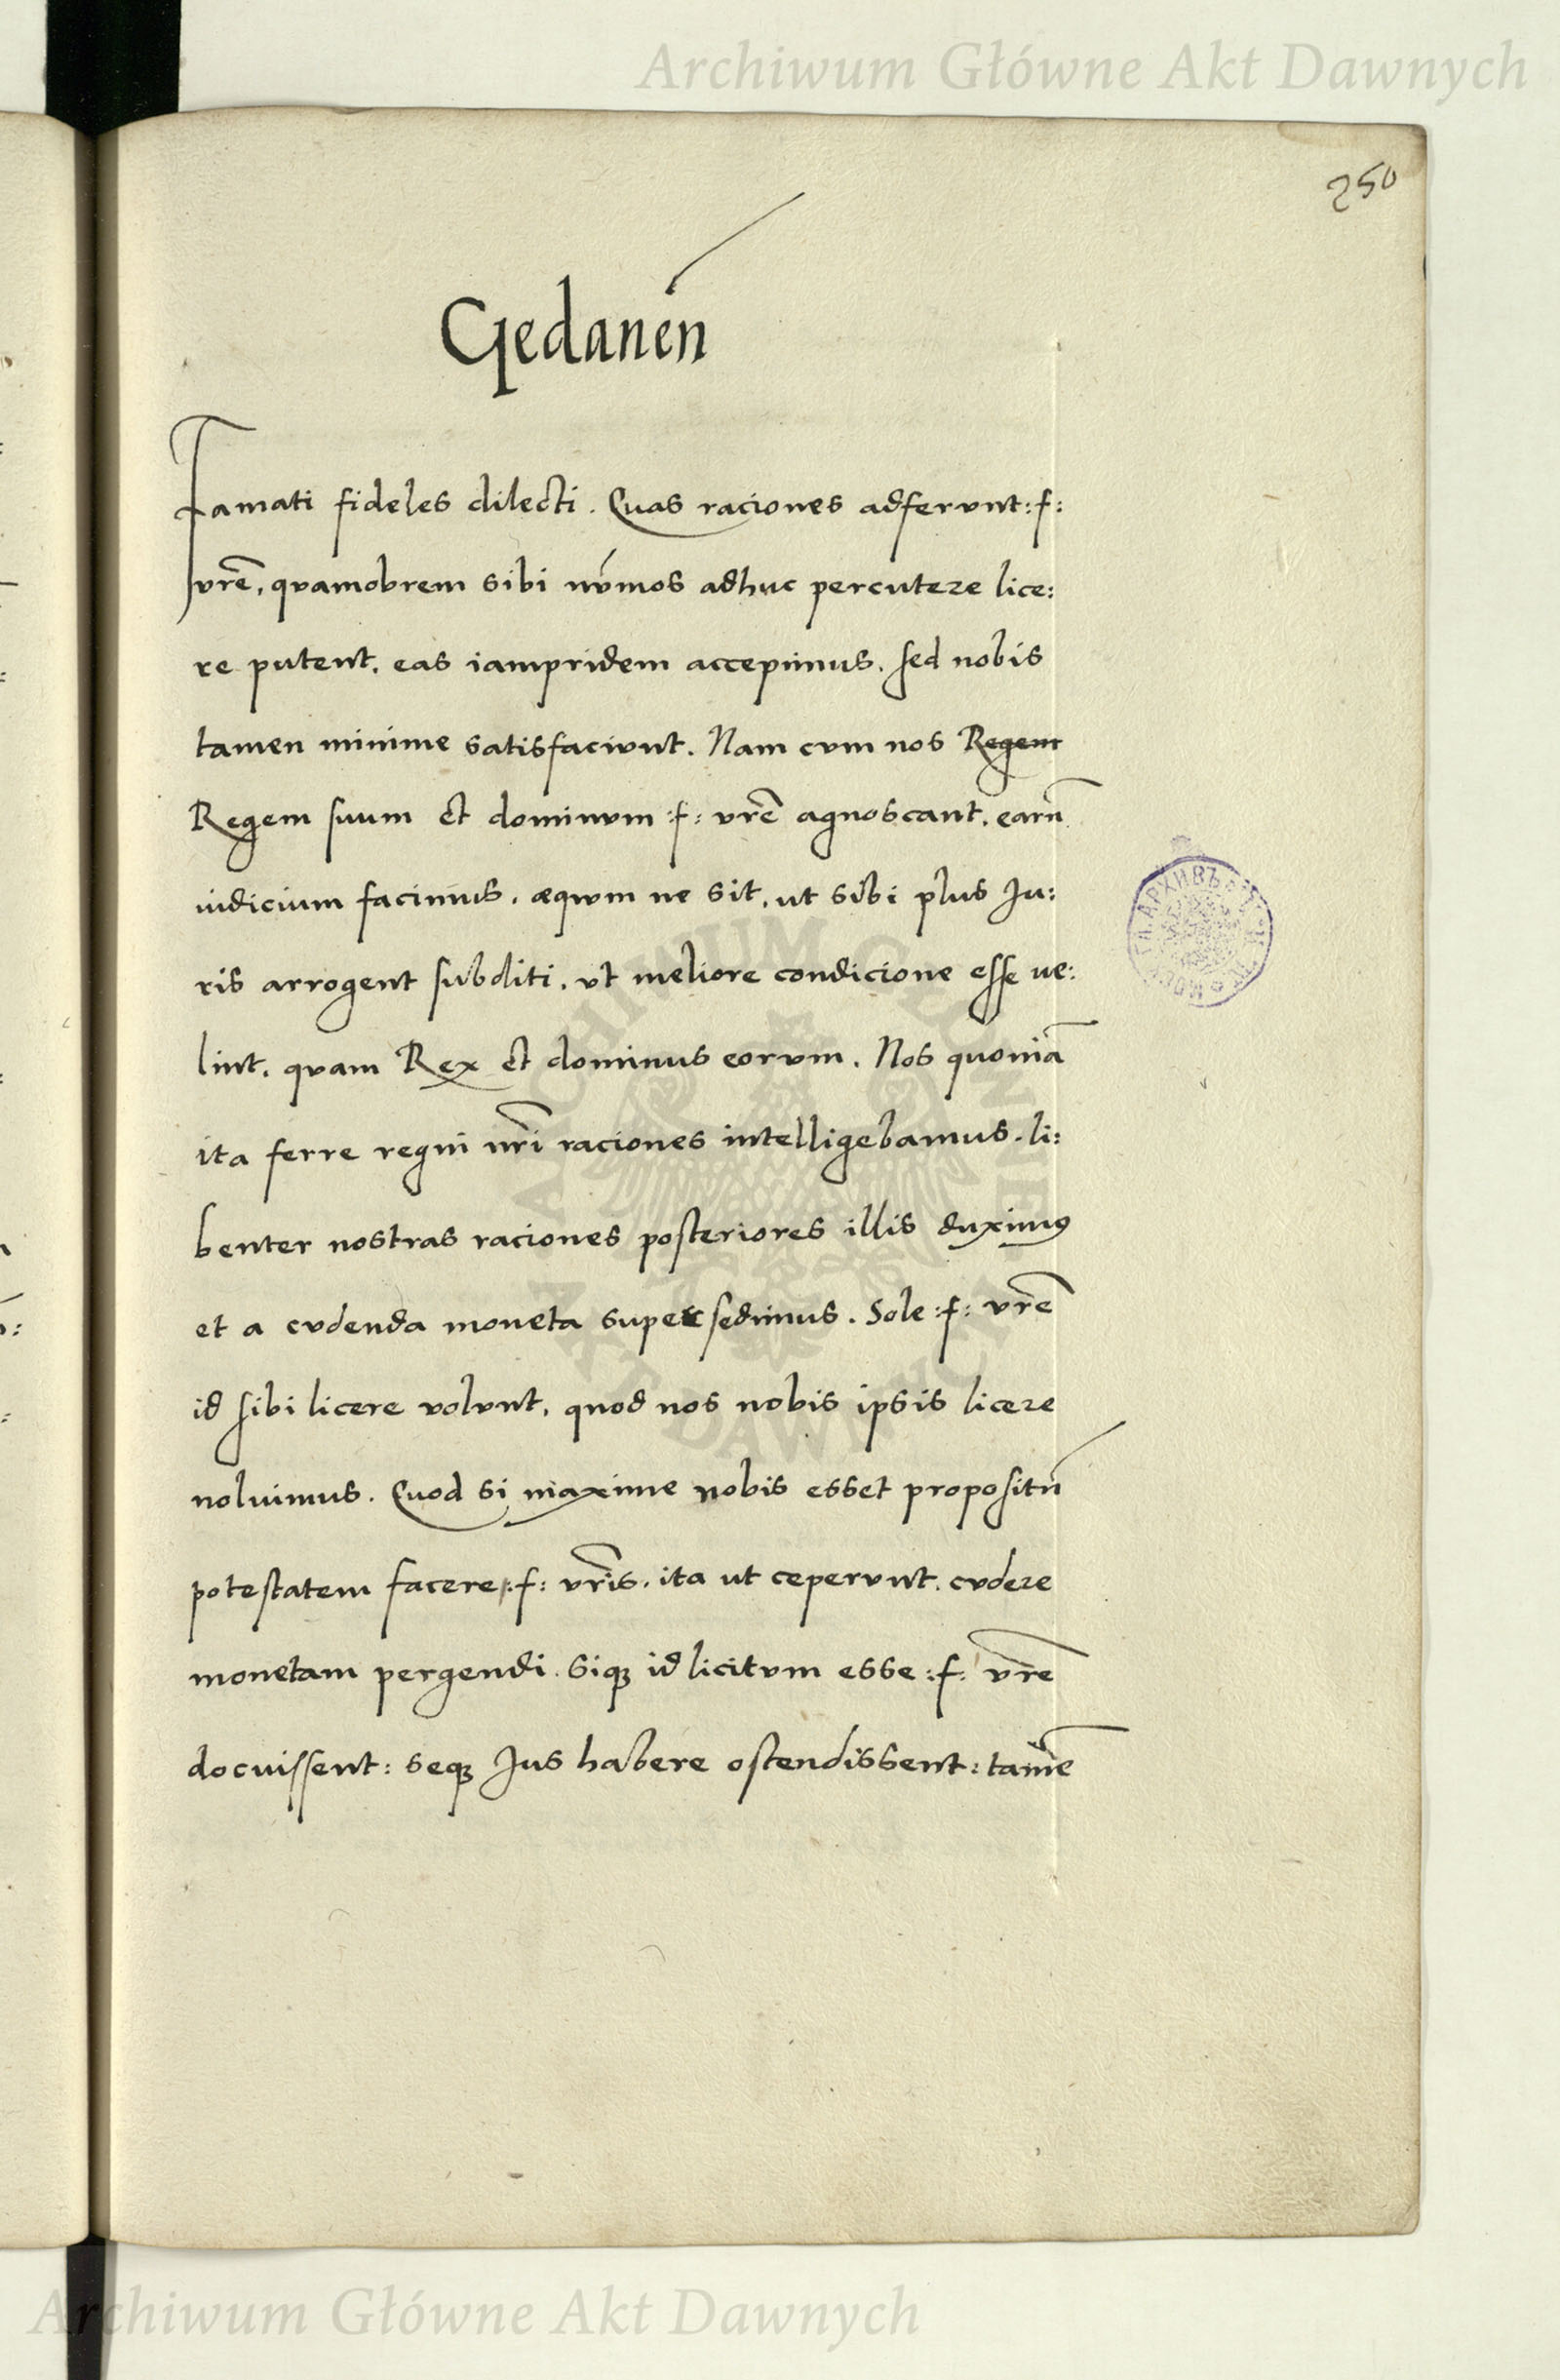 Archiwum Główne Akt Dawnych
250
Gedanen̄
Famati fideles dilecti. Quas raciones adferunt :f:
vrē, quamobrem sibi nūmos adhuc percutere lice:
re putent, eas iampridem accepimus. sed nobis
tamen minime satisfaciunt. Nam cum nos Regem
Regem suum et dominum :f: vrē agnoscant, earū
iudicium facimus, æquum ne sit, ut sibi plus Ju:
ris arrogent subditi, ut meliore condicione esse ue:
lint, quam Rex et dominus eorum. Nos quoniā
ita ferre regni nr̄i raciones intelligebamus, li:
benter nostras raciones posteriores illis duximus
et a cudenda moneta supersedimus. Sole :f: vrē
id sibi licere volunt, quod nos nobis ipsis licere
noluimus. Quod si maxime nobis esset propositū
potestatem facere :f: vr̄is, ita ut ceperunt, cudere
monetam pergendi. siqꝫ id licitum esse :f: vr̄e
docuissent: seqꝫ Jus habere ostendissent: tamē
ARCHIWUM GŁÓWNE
AKT DAWNYCH
Archiwum Główne Akt Dawnych